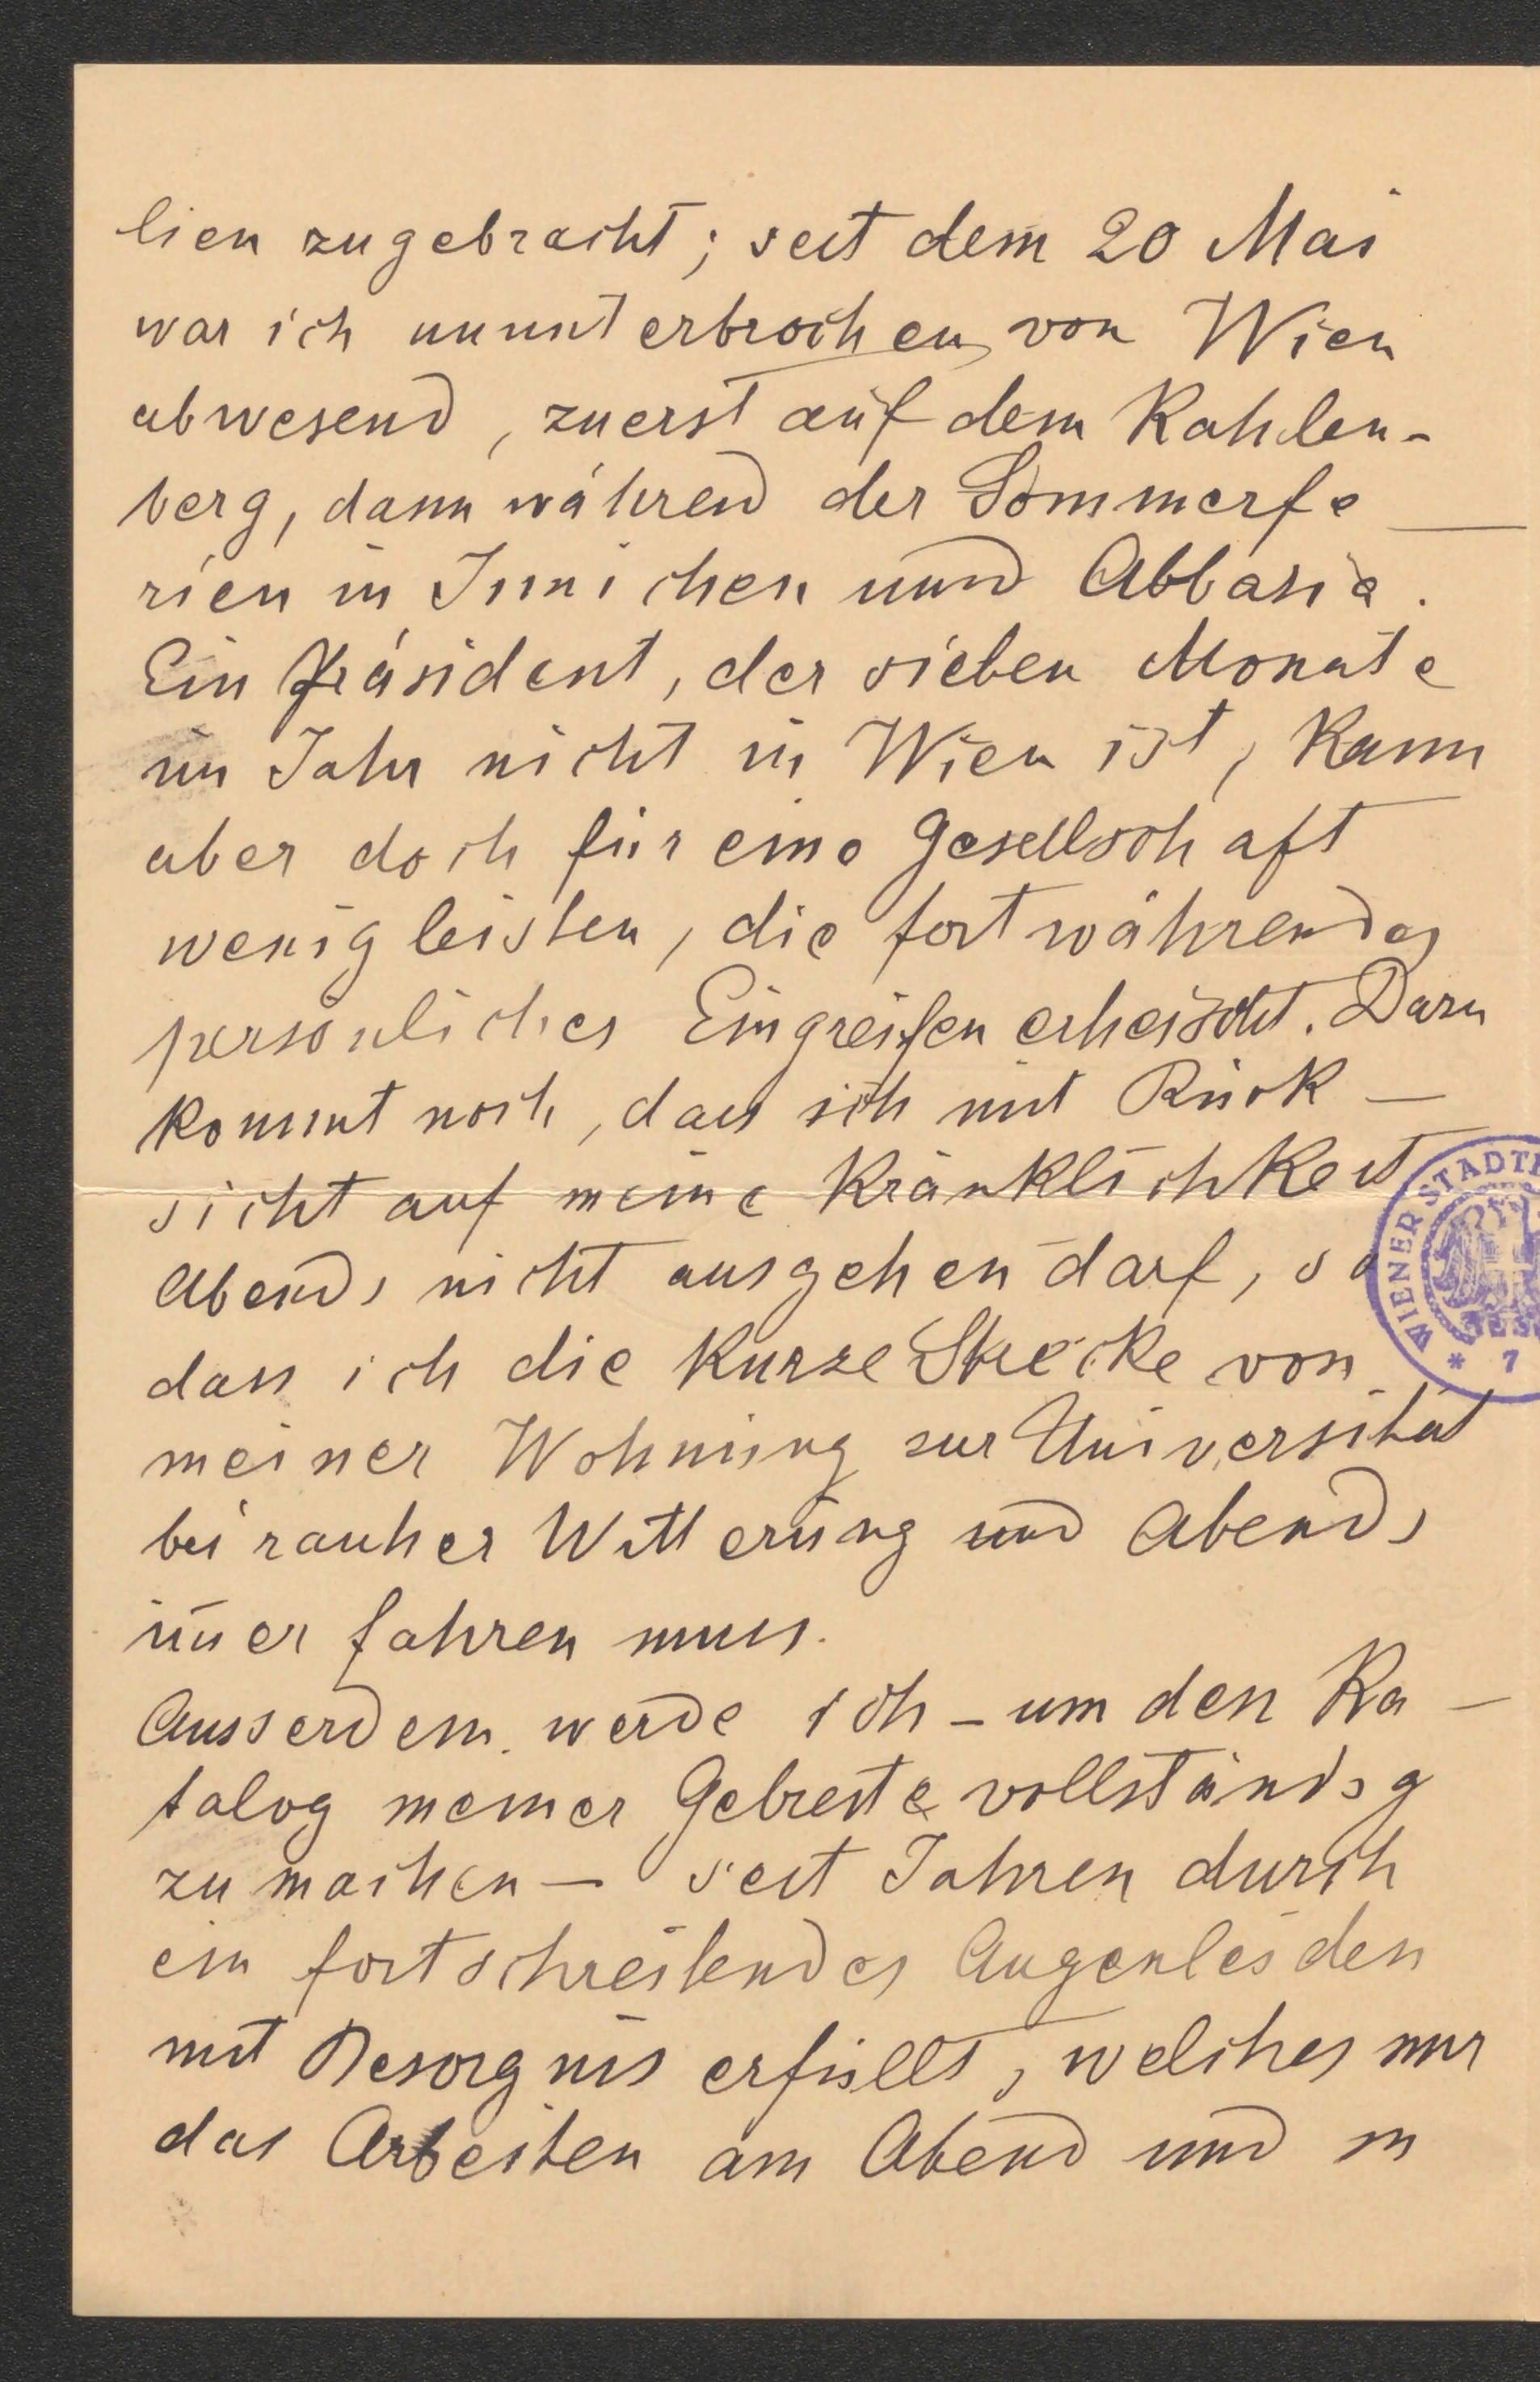 lien zugebracht; seit dem 20 Mai
war ich ununterbrochen von Wien
abwesend, zuerst auf dem Kahlen-
berg, dann während der Sommerfe-
rien in Innichen und Abbazia.
Ein Präsident, der sieben Monate
im Jahr nicht in Wien ist, kann
aber doch für eine Gesellschaft
wenig leisten, die fortwährendes
persönliches Eingreifen erheischt. Dazu
kommt noch, dass ich mit Rück-
sicht auf meine Kränklichkeit
Abends nicht ausgehen darf, so
dass ich die kurze Strecke von
meiner Wohnung zur Universität
bei rauher Witterung und Abends
im̄er fahren muss.
Ausserdem werde ich - um den Ka-
talog meiner Gebreste vollständig
zu machen - seit Jahren durch
ein fortschreitendes Augenleiden
mit Besorgnis erfüllt, welches mir
das Arbeiten am Abend und in
WIENER STADT
* 7